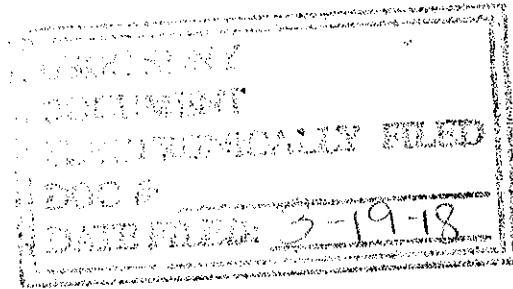 DOCUMENT
ELECTRONICALLY FILED
DOC #
DATE FILED: 3-19-18